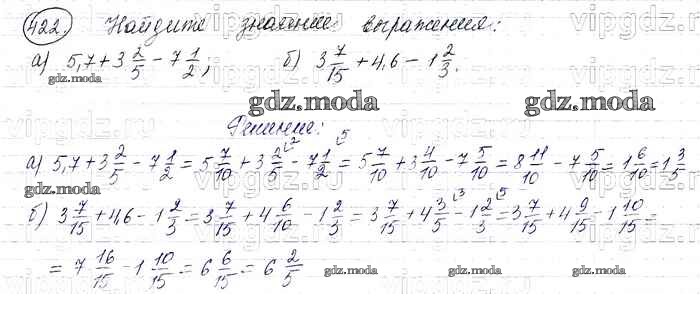 422. Найдите значение выражения:
а) 5,7 + 3 2/5 − 7 1/2; б) 3 7/15 + 4,6 − 1 2/3.
gdz.moda gdz.moda
Решение:
а) 5,7 + 3 2/5 − 7 1/2 = 5 7/10 + 3 2/5 − 7 1/2 = 5 7/10 + 3 4/10 − 7 5/10 = 8 11/10 − 7 5/10 = 1 6/10 = 1 3/5
gdz.moda gdz.moda
б) 3 7/15 + 4,6 − 1 2/3 = 3 7/15 + 4 6/10 − 1 2/3 = 3 7/15 + 4 3/5 − 1 2/3 = 3 7/15 + 4 9/15 − 1 10/15 =
= 7 16/15 − 1 10/15 = 6 6/15 = 6 2/5
gdz.moda gdz.moda